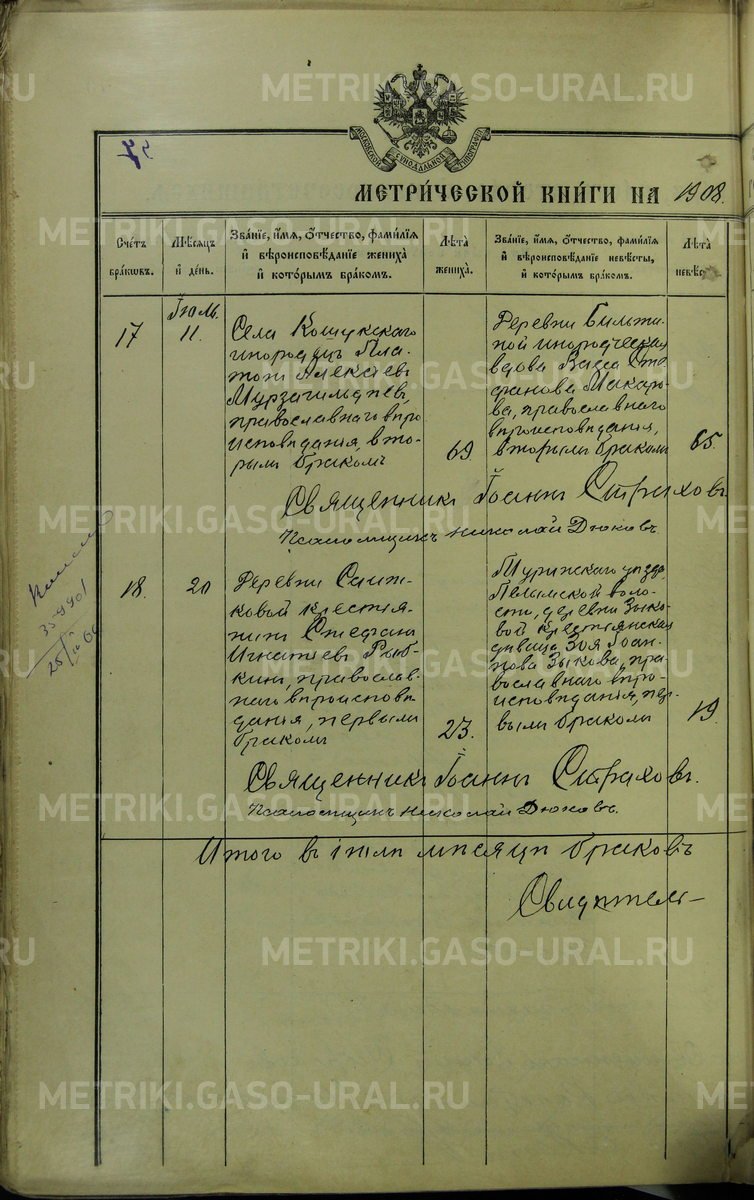 METRIKI.GASO-URAL.RU
МОСКОВСКОЙ СѴНОДАЛЬНОЙ ТИПОГРАФІИ
МЕТРИ́ЧЕСКОЙ КНИ́ГИ НА 1908.
Сче́тъ бра́кωвъ.
Мѣ́сѧцъ и҆ де́нь.
Зва́нїе, и҆́мѧ, ѻ҆́тчество, фамі́лїѧ
и҆ вѣроисповѣ́данїе жениха̀
и҆ кото́рымъ бра́комъ.
Лѣ́та жениха̀.
Зва́нїе, и҆́мѧ, ѻ҆́тчество, фамі́лїѧ
и҆ вѣроисповѣ́данїе невѣ́сты,
и҆ кото́рымъ бра́комъ.
Лѣ́та
17
Іюль.
11.
Села Кошукскаго
инородецъ Пла-
тонъ Алексѣевъ
Мурзагильдеевъ,
православнаго вѣро
исповѣданія, вто-
рымъ бракомъ
69.
вдова Васса Сте
фанова Макаро-
ва, православнаго
вѣроисповѣданія,
вторымъ бракомъ
65.
Священникъ Іоаннъ Страховъ.
Псаломщикъ Николай Дюковъ.
18.
20
Деревни
ковой крестья-
нинъ Стефанъ
Игнатіевъ Рыб-
кинъ, православ-
наго вѣроисповѣ-
данія, первымъ
бракомъ
23.
Туринскаго уѣзда,
Пелымской воло-
сти, деревни Зыко-
вой крестьянская
дѣвица Зоя Іоан-
нова Зыкова, пра-
вославнаго вѣро-
исповѣданія, пер-
вымъ бракомъ
19.
Священникъ Іоаннъ Страховъ.
Псаломщикъ Николай Дюковъ.
Итого въ іюлѣ мѣсяцѣ браковъ
Свидѣтель-